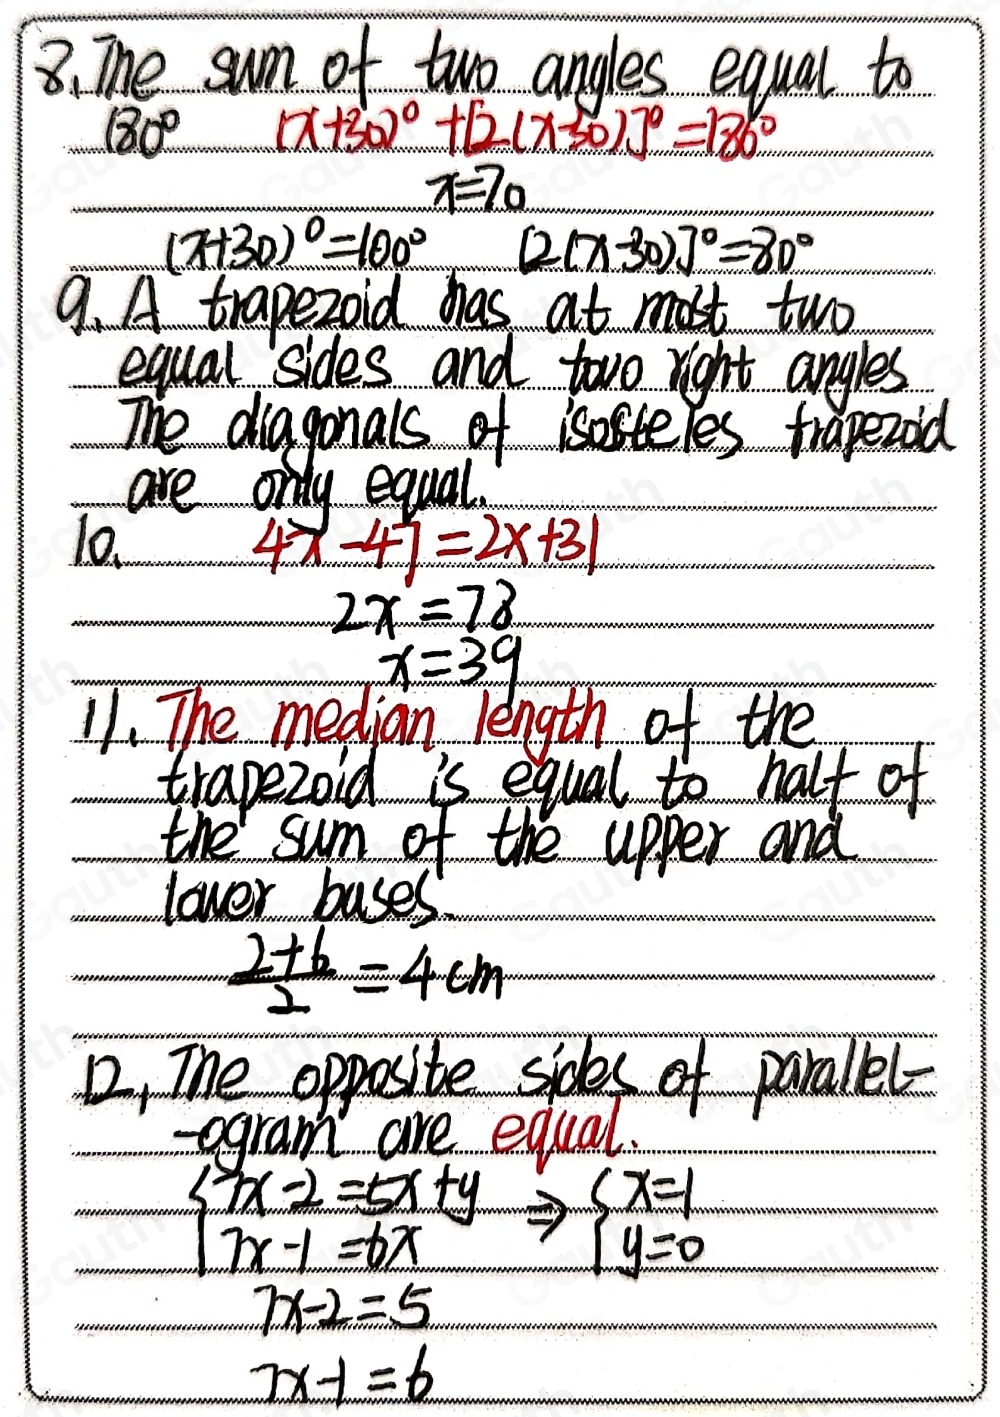 8. The sum of two angles equal to
180° (x+30)° + [2(x-30)]° = 180°
x=70
(x+30)°=100° [2(x-30)]°=80°
9. A trapezoid has at most two
equal sides and two right angles
The diagonals of isosceles trapezoid
are only equal.
10. 4x-47=2x+31
2x=78
x=39
11. The median length of the
trapezoid is equal to half of
the sum of the upper and
lower bases.
2+6/2 = 4cm
12. The opposite sides of parallel-
-ogram are equal.
{7x-2=5x+y ⇒ {x=1
7x-1=6x y=0
7x-2=5
7x-1=6
Gauth